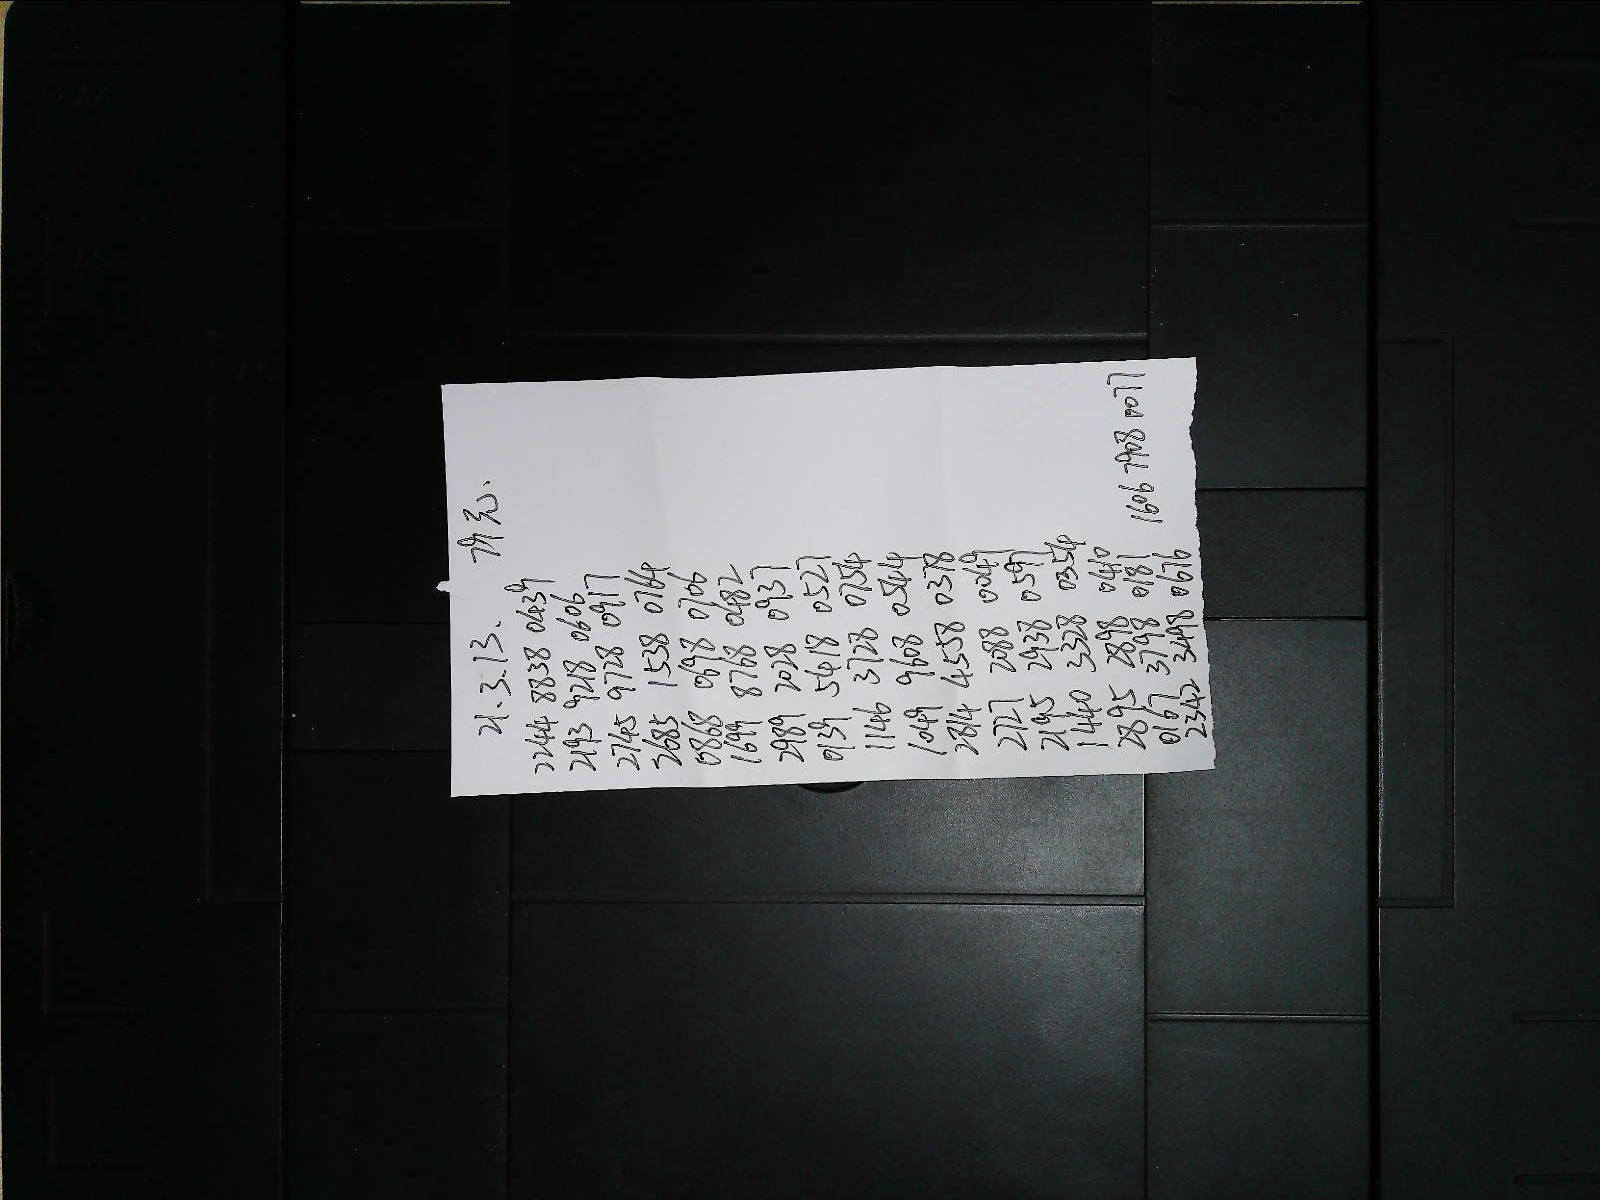 21.3.13. 许亮.
2244 8838 0439
2193 9218 0606
2745 9728 0917
2685 1538 0764
0868 0698 0706
1699 8768 0482
2989 2028 0937
0139 5418 0527
1146 3728 0754
1049 9608 0544
2814 4558 0378
2727 2088 0049
2195 2938 0597
1440 3328 0354
2895 2898 0410
0167 3798 0181 1606 7908 0077
2342 3498 0676